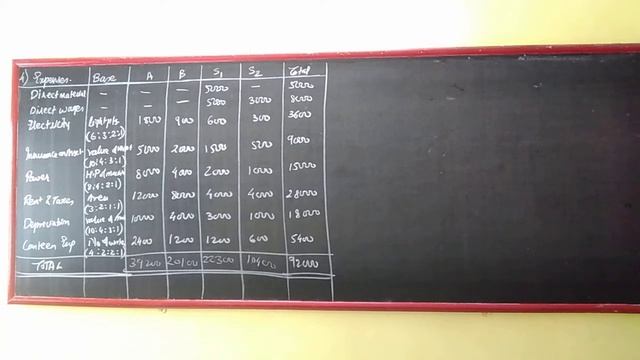 Expenses. Base A B S1 S2 Total
Direct material — — — 5000 — 5000
Direct wages — — — 5000 3000 8000
Electricity light pts (6:3:2:1) 1800 900 600 300 3600
Insurance value (10:4:3:1) 5000 2000 1500 500 9000
Power H.P of (8:4:2:1) 8000 4000 2000 1000 15000
Rent & Taxes Area (3:2:1:1) 12000 8000 4000 4000 28000
Depreciation value of (10:4:3:1) 10000 4000 3000 1000 18000
Canteen Exp (4:2:2:1) 2400 1200 1200 600 5400
TOTAL 39200 20100 22300 10400 92000